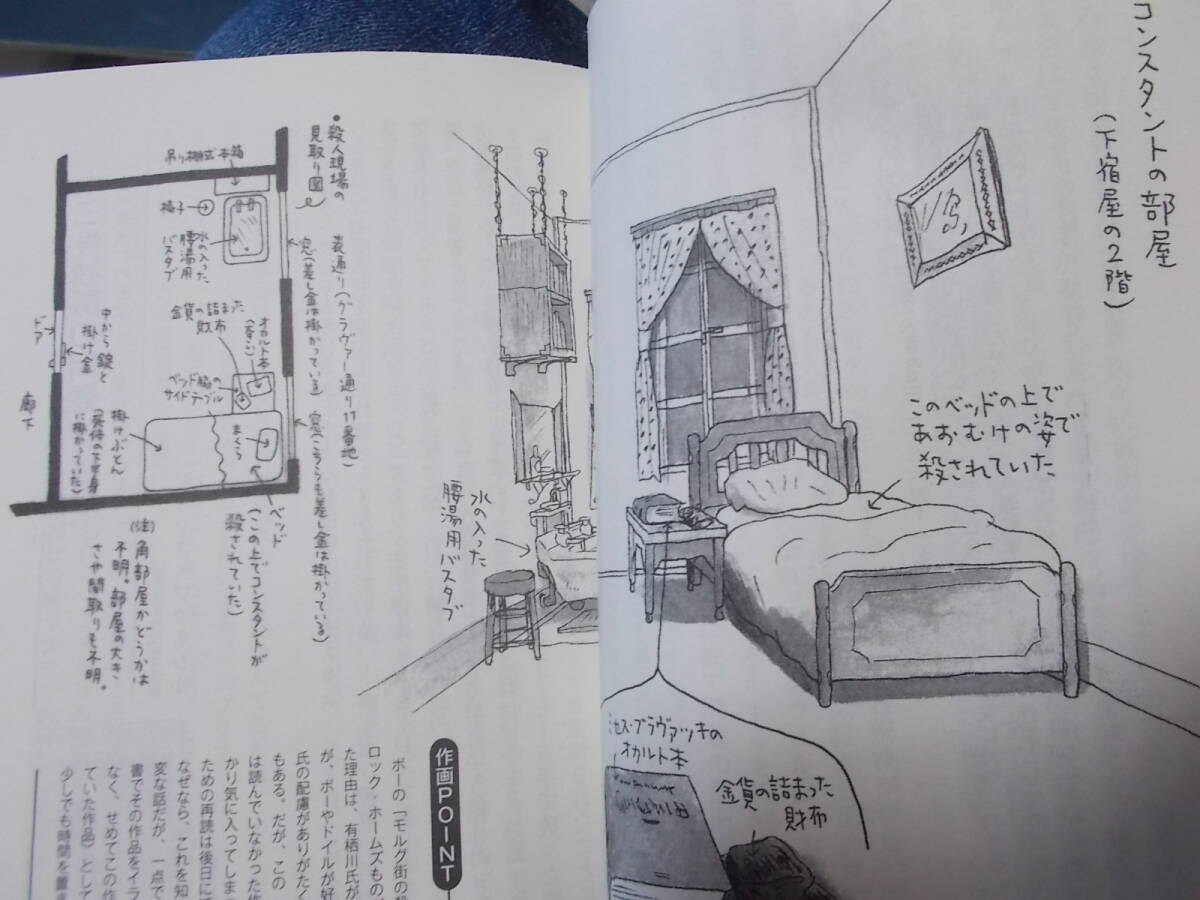 コンスタントの部屋
(下宿屋の2階)
このベッドの上で
あおむけの姿で
殺されていた
ミセス・ブラヴァツキの
オカルト本
金貨の詰まった
財布
水の入った
腰湯用バスタブ
●殺人現場の
見取り図
表通り(グラヴァー通り17番地)
窓(差し金は掛かっている)
窓(こちらも差し金は掛かっている)
吊り棚式本箱
椅子
水の入った
腰湯用
バスタブ
金貨の詰まった
財布
オカルト本
ベッド脇の
サイドテーブル
まくら
中から錠と
掛け金
ドア
廊下
掛けぶとん
(死体の下半身
に掛かっていた)
ベッド
(この上でコンスタントが
殺されていた)
(注)
角部屋かどうかは
不明。部屋の大き
さや間取りも不明。
作画POINT
ポーの「モルグ街の
ロック・ホームズもの
た理由は、有栖川氏が
が、ポーやドイルが好
氏の配慮がありがたく
もある。だが、この
は読んでいなかった作
かり気に入ってしま
ための再読は後日に
なぜなら、これを知
変な話だが、一点で
書でその作品をイラ
なく、せめてこの作
ていた作品)として
少しでも時間を置き